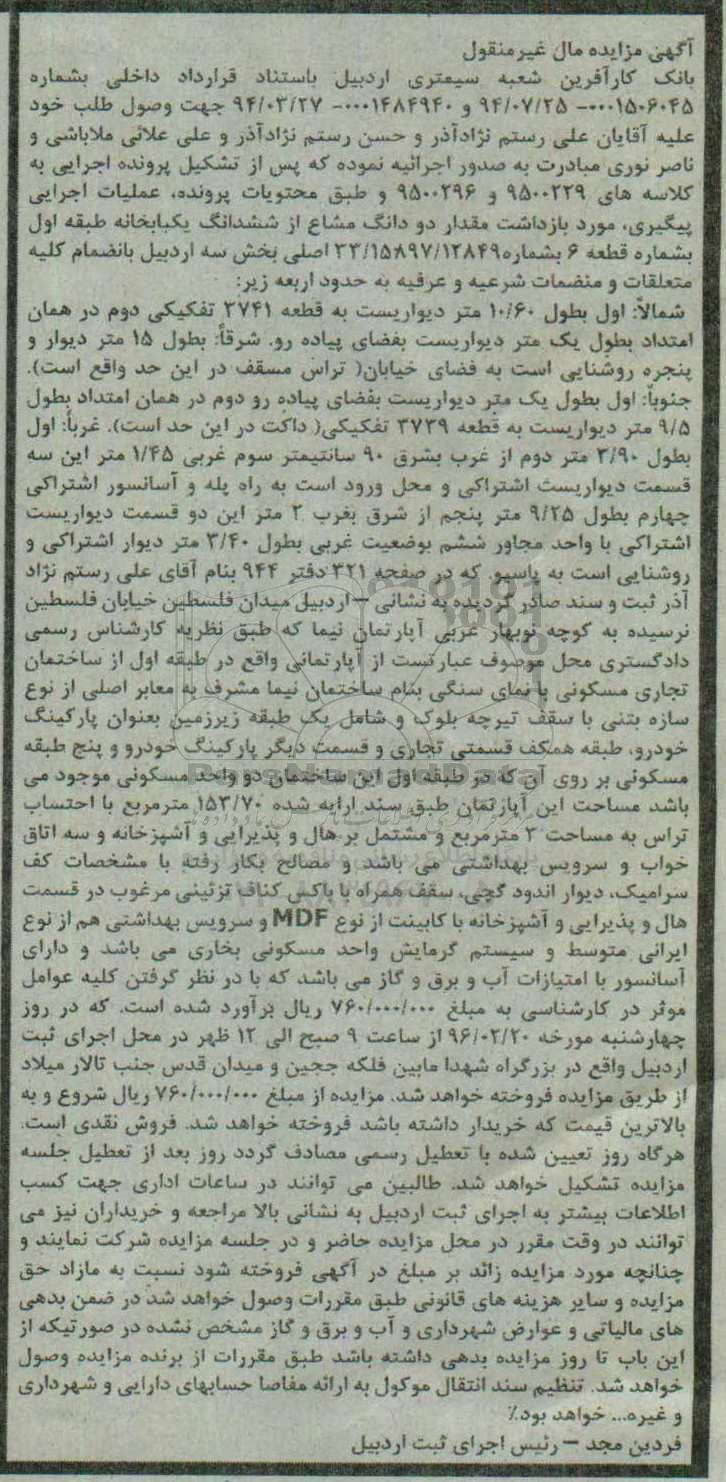 آگهی مزایده مال غیرمنقول
بانک کارآفرین شعبه سیمتری اردبیل باستناد قرارداد داخلی بشماره
۰۰۰۱۵۰۶۰۴۵- ۹۴/۰۷/۲۵ و ۰۰۰۱۴۸۴۹۴۰- ۹۴/۰۳/۲۷ جهت وصول طلب خود
علیه آقایان علی رستم نژادآذر و حسن رستم نژادآذر و علی علائی ملاباشی و
ناصر نوری مبادرت به صدور اجرائیه نموده که پس از تشکیل پرونده اجرایی به
کلاسه های ۹۵۰۰۲۲۹ و ۹۵۰۰۲۹۶ و طبق محتویات پرونده، عملیات اجرایی
پیگیری، مورد بازداشت مقدار دو دانگ مشاع از ششدانگ یکبابخانه طبقه اول
بشماره قطعه ۶ بشماره۳۳/۱۵۸۹۷/۱۲۸۴۹ اصلی بخش سه اردبیل بانضمام کلیه
متعلقات و منضمات شرعیه و عرفیه به حدود اربعه زیر:
شمالاً: اول بطول ۱۰/۶۰ متر دیواریست به قطعه ۳۷۴۱ تفکیکی دوم در همان
امتداد بطول یک متر دیواریست بفضای پیاده رو. شرقاً: بطول ۱۵ متر دیوار و
پنجره روشنایی است به فضای خیابان( تراس مسقف در این حد واقع است).
جنوباً: اول بطول یک متر دیواریست بفضای پیاده رو دوم در همان امتداد بطول
۹/۵ متر دیواریست به قطعه ۳۷۳۹ تفکیکی( داکت در این حد است). غرباً: اول
بطول ۳/۹۰ متر دوم از غرب بشرق ۹۰ سانتیمتر سوم غربی ۱/۴۵ متر این سه
قسمت دیواریست اشتراکی و محل ورود است به راه پله و آسانسور اشتراکی
چهارم بطول ۹/۲۵ متر پنجم از شرق بغرب ۲ متر این دو قسمت دیواریست
اشتراکی با واحد مجاور ششم بوضعیت غربی بطول ۳/۴۰ متر دیوار اشتراکی و
روشنایی است به پاسیو. که در صفحه ۳۲۱ دفتر ۹۴۴ بنام آقای علی رستم نژاد
آذر ثبت و سند صادر گردیده به نشانی –اردبیل میدان فلسطین خیابان فلسطین
نرسیده به کوچه نوبهار غربی آپارتمان نیما که طبق نظریه کارشناس رسمی
دادگستری محل موصوف عبارتست از آپارتمانی واقع در طبقه اول از ساختمان
تجاری مسکونی با نمای سنگی بنام ساختمان نیما مشرف به معابر اصلی از نوع
سازه بتنی با سقف تیرچه بلوک و شامل یک طبقه زیرزمین بعنوان پارکینگ
خودرو، طبقه همکف قسمتی تجاری و قسمت دیگر پارکینگ خودرو و پنج طبقه
مسکونی بر روی آن که در طبقه اول این ساختمان دو واحد مسکونی موجود می
باشد مساحت این آپارتمان طبق سند ارایه شده ۱۵۳/۷۰ مترمربع با احتساب
تراس به مساحت ۲ مترمربع و مشتمل بر هال و پذیرایی و آشپزخانه و سه اتاق
خواب و سرویس بهداشتی می باشد و مصالح بکار رفته با مشخصات کف
سرامیک، دیوار اندود گچی، سقف همراه با باکس کناف تزئینی مرغوب در قسمت
هال و پذیرایی و آشپزخانه با کابینت از نوع MDF و سرویس بهداشتی هم از نوع
ایرانی متوسط و سیستم گرمایش واحد مسکونی بخاری می باشد و دارای
آسانسور با امتیازات آب و برق و گاز می باشد که با در نظر گرفتن کلیه عوامل
موثر در کارشناسی به مبلغ ۷۶۰/۰۰۰/۰۰۰ ریال برآورد شده است. که در روز
چهارشنبه مورخه ۹۶/۰۲/۲۰ از ساعت ۹ صبح الی ۱۲ ظهر در محل اجرای ثبت
اردبیل واقع در بزرگراه شهدا مابین فلکه ججین و میدان قدس جنب تالار میلاد
از طریق مزایده فروخته خواهد شد. مزایده از مبلغ ۷۶۰/۰۰۰/۰۰۰ ریال شروع و به
بالاترین قیمت که خریدار داشته باشد فروخته خواهد شد. فروش نقدی است.
هرگاه روز تعیین شده با تعطیل رسمی مصادف گردد روز بعد از تعطیل جلسه
مزایده تشکیل خواهد شد. طالبین می توانند در ساعات اداری جهت کسب
اطلاعات بیشتر به اجرای ثبت اردبیل به نشانی بالا مراجعه و خریداران نیز می
توانند در وقت مقرر در محل مزایده حاضر و در جلسه مزایده شرکت نمایند و
چنانچه مورد مزایده زائد بر مبلغ در آگهی فروخته شود نسبت به مازاد حق
مزایده و سایر هزینه های قانونی طبق مقررات وصول خواهد شد در ضمن بدهی
های مالیاتی و عوارض شهرداری و آب و برق و گاز مشخص نشده در صورتیکه از
این باب تا روز مزایده بدهی داشته باشد طبق مقررات از برنده مزایده وصول
خواهد شد. تنظیم سند انتقال موکول به ارائه مفاصا حسابهای دارایی و شهرداری
و غیره... خواهد بود٪
فردین مجد – رئیس اجرای ثبت اردبیل